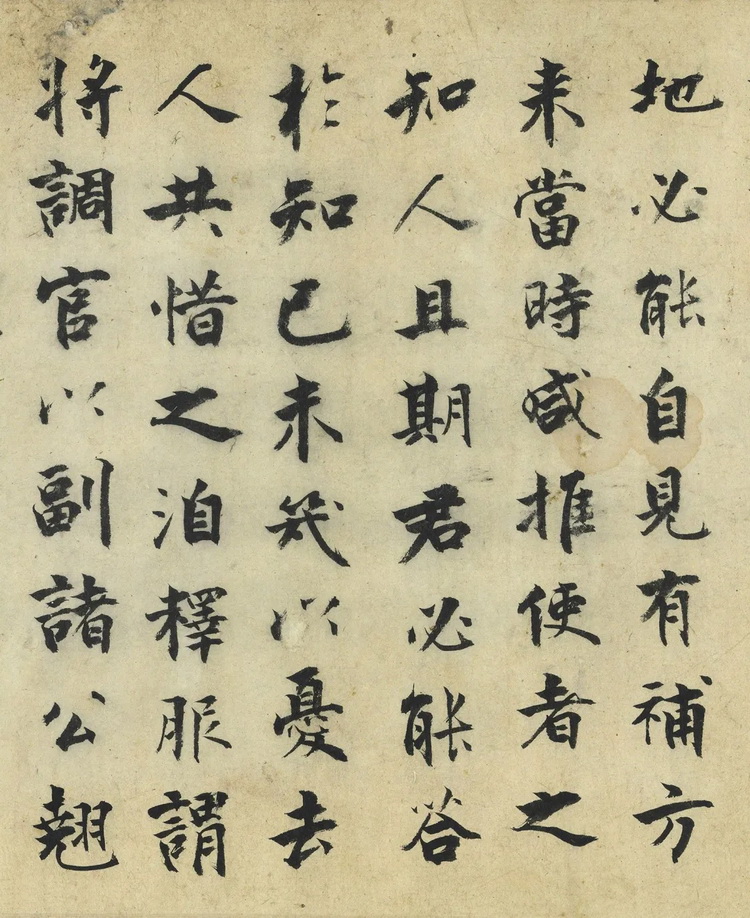 地必能自見有補方
来當時咸推使者之
知人且期君必能答
扵知已未笺以憂去
人共惜之洎釋服謂
將調官以副諸公翹